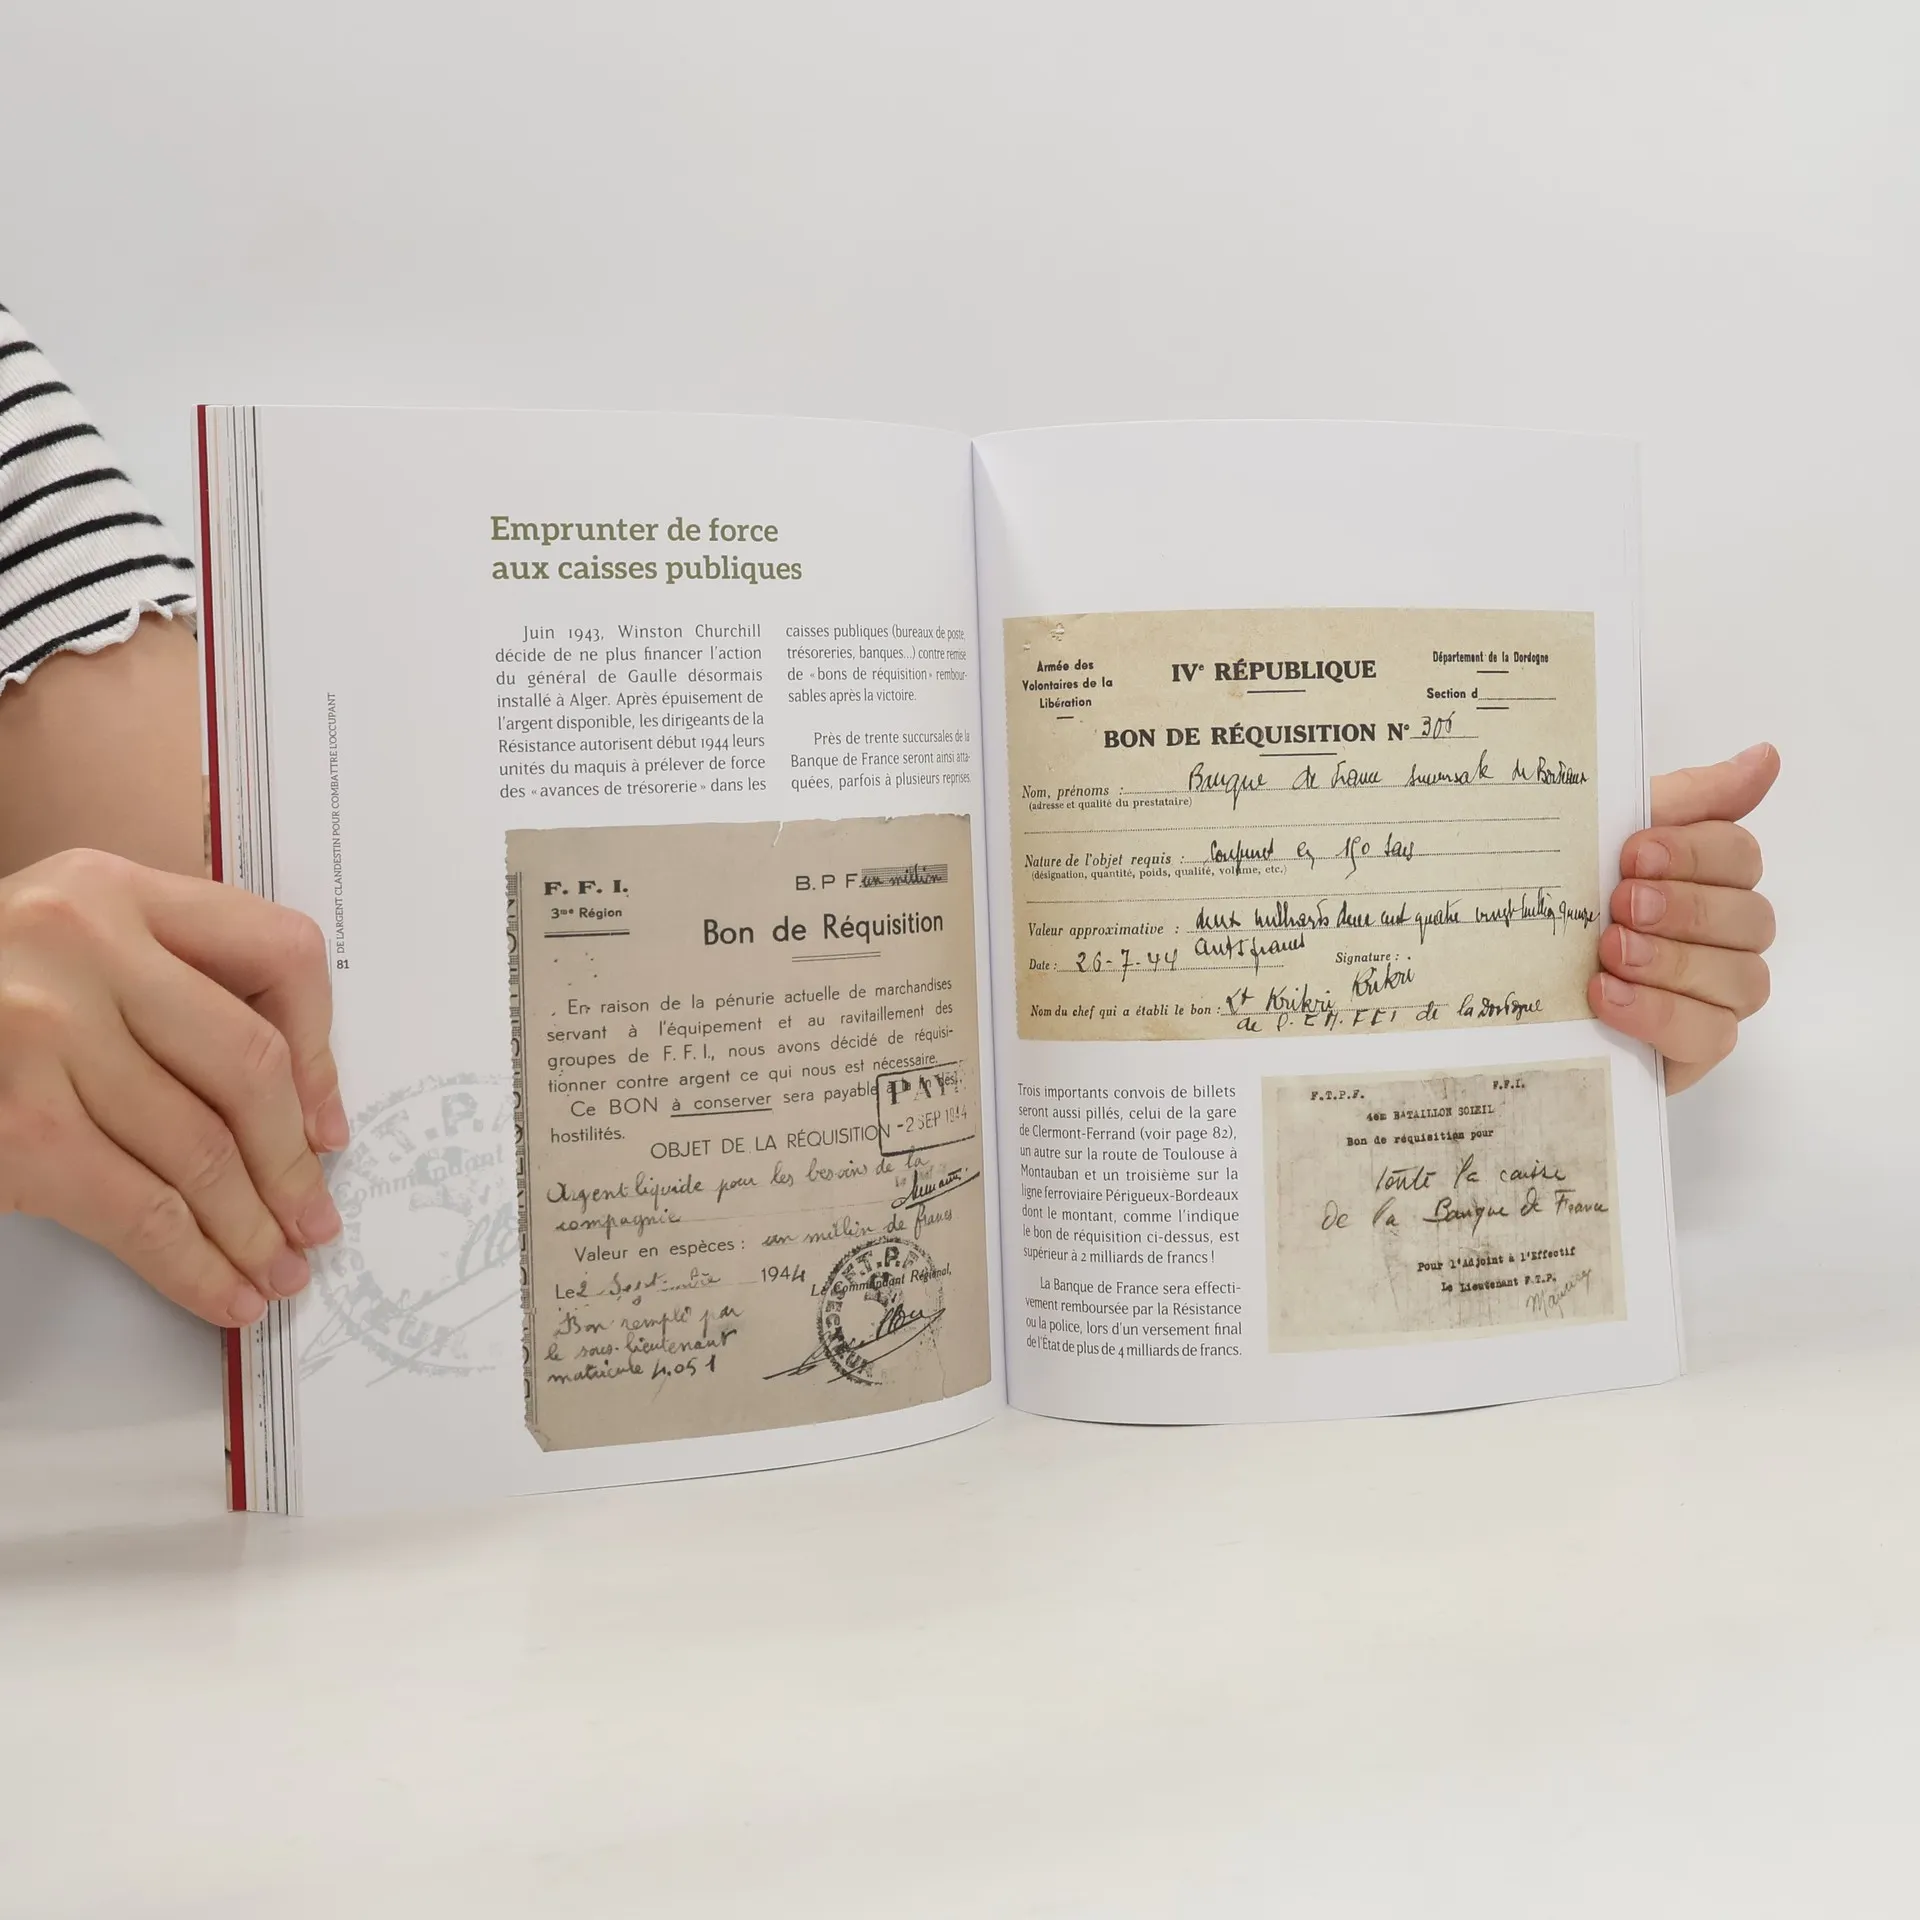 Emprunter de force
aux caisses publiques
Juin 1943, Winston Churchill
décide de ne plus financer l'action
du général de Gaulle désormais
installé à Alger. Après épuisement de
l'argent disponible, les dirigeants de la
Résistance autorisent début 1944 leurs
unités du maquis à prélever de force
des « avances de trésorerie » dans les
caisses publiques (bureaux de poste,
trésoreries, banques...) contre remise
de « bons de réquisition » rembour-
sables après la victoire.
Près de trente succursales de la
Banque de France seront ainsi atta-
quées, parfois à plusieurs reprises.
DE L'ARGENT CLANDESTIN POUR COMBATTRE L'OCCUPANT
81
F. F. I.
3me Région
B. P F. un million
Bon de Réquisition
En raison de la pénurie actuelle de marchandises
servant à l'équipement et au ravitaillement des
groupes de F. F. I., nous avons décidé de réquisi-
tionner contre argent ce qui nous est nécessaire.
Ce BON à conserver sera payable à la fin des
hostilités.
PAY
-2 SEP 1944
OBJET DE LA RÉQUISITION
Argent liquide pour les besoins de la
compagnie
Valeur en espèces : un million de francs
Le 2 Septembre 1944
Le Commandant Régional,
Bon rempli par
le sous-lieutenant
matricule 4.051
Armée des
Volontaires de la
Libération
IVe RÉPUBLIQUE
Département de la Dordogne
Section d
BON DE RÉQUISITION N° 306
Nom, prénoms : Banque de France succursale de Bordeaux
(adresse et qualité du prestataire)
Nature de l'objet requis : Coupures en 150 sacs
(désignation, quantité, poids, qualité, volume, etc.)
Valeur approximative : deux milliards deux cent quatre vingt
francs
Date : 26-7-44
Signature :
Krikri
Nom du chef qui a établi le bon : Lt Krikri
de l' E.M. FFI de la Dordogne
Trois importants convois de billets
seront aussi pillés, celui de la gare
de Clermont-Ferrand (voir page 82),
un autre sur la route de Toulouse à
Montauban et un troisième sur la
ligne ferroviaire Périgueux-Bordeaux
dont le montant, comme l'indique
le bon de réquisition ci-dessus, est
supérieur à 2 milliards de francs !
La Banque de France sera effecti-
vement remboursée par la Résistance
ou la police, lors d'un versement final
de l'État de plus de 4 milliards de francs.
F.T.P.F.
F.F.I.
4em BATAILLON SOLEIL
Bon de réquisition pour
toute la caisse
de la Banque de France
Pour l'Adjoint à l'Effectif
Le Lieutenant F.T.P.